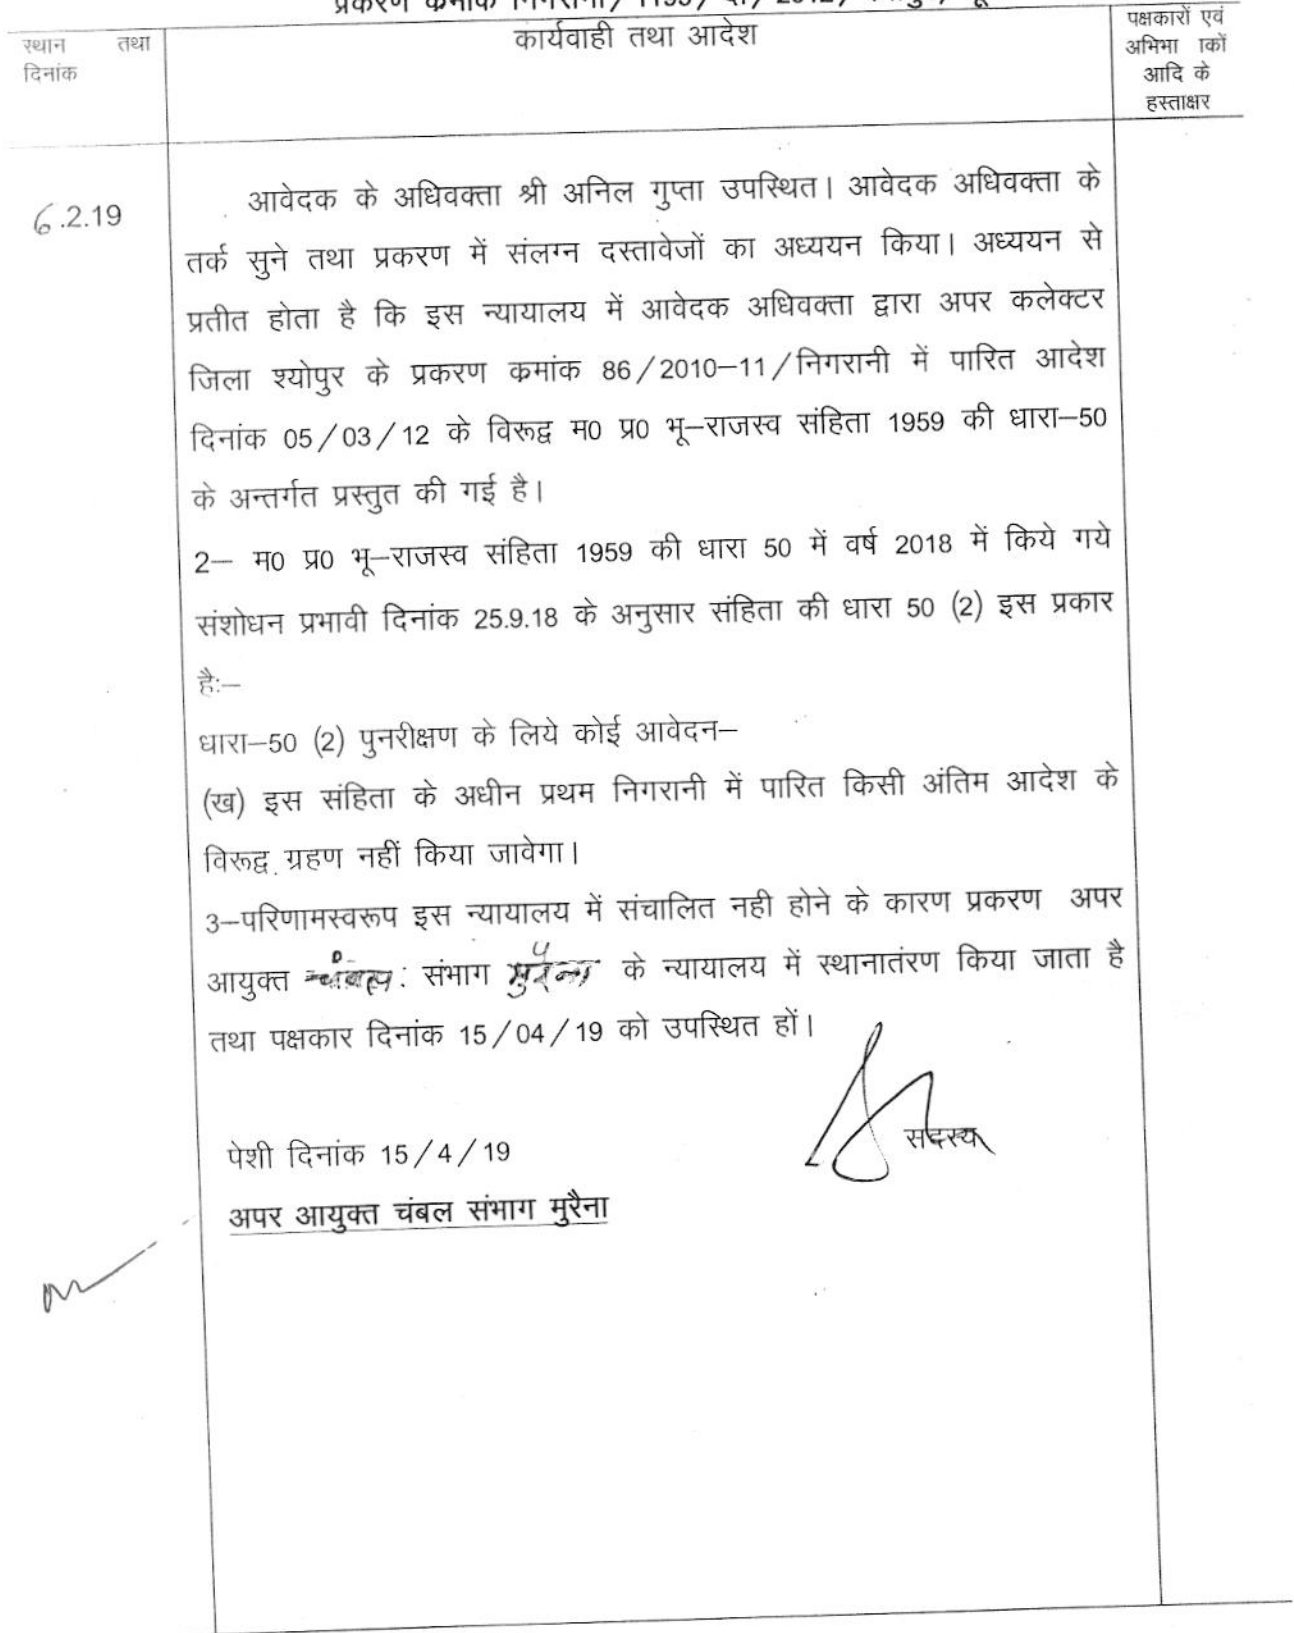 प्रकरण कमांक निगरानी/
स्थान तथा
दिनांक
कार्यवाही तथा आदेश
पक्षकारों एवं
अभिभा कों
आदि के
हस्ताक्षर
6.2.19
आवेदक के अधिवक्ता श्री अनिल गुप्ता उपस्थित। आवेदक अधिवक्ता के
तर्क सुने तथा प्रकरण में संलग्न दस्तावेजों का अध्ययन किया। अध्ययन से
प्रतीत होता है कि इस न्यायालय में आवेदक अधिवक्ता द्वारा अपर कलेक्टर
जिला श्योपुर के प्रकरण कमांक 86/2010–11/निगरानी में पारित आदेश
दिनांक 05/03/12 के विरूद्व म0 प्र0 भू–राजस्व संहिता 1959 की धारा–50
के अन्तर्गत प्रस्तुत की गई है।
2– म0 प्र0 भू–राजस्व संहिता 1959 की धारा 50 में वर्ष 2018 में किये गये
संशोधन प्रभावी दिनांक 25.9.18 के अनुसार संहिता की धारा 50 (2) इस प्रकार
है:–
धारा–50 (2) पुनरीक्षण के लिये कोई आवेदन–
(ख) इस संहिता के अधीन प्रथम निगरानी में पारित किसी अंतिम आदेश के
विरूद्व ग्रहण नहीं किया जावेगा।
3–परिणामस्वरूप इस न्यायालय में संचालित नही होने के कारण प्रकरण अपर
आयुक्त चंबल: संभाग मुरैना के न्यायालय में स्थानातंरण किया जाता है
तथा पक्षकार दिनांक 15/04/19 को उपस्थित हों।
सदस्य
पेशी दिनांक 15/4/19
अपर आयुक्त चंबल संभाग मुरैना